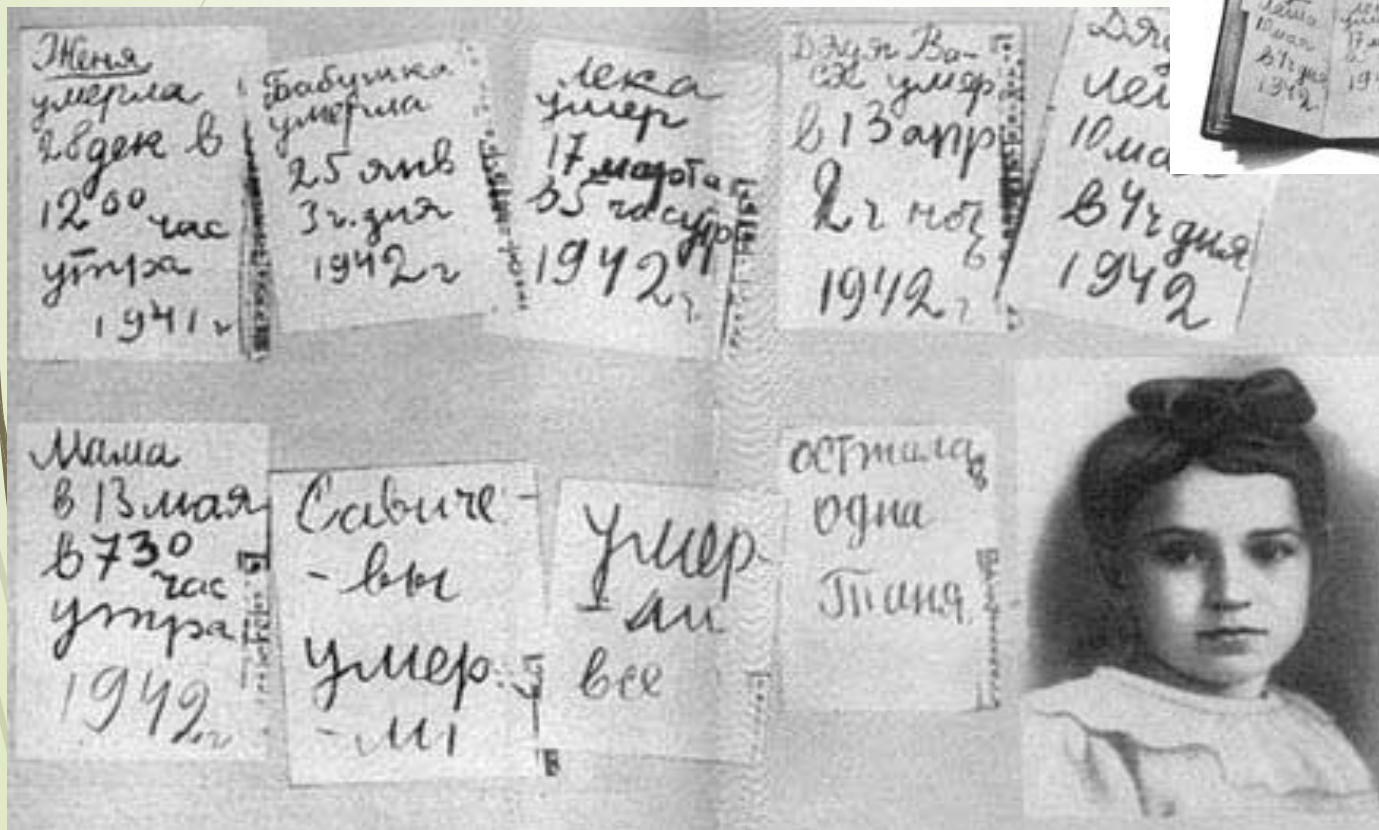 Женя
умерла
28 дек в
12 00 час
утра
1941 г
Бабушка
умерла
25 янв
3 ч. дня
1942 г
Лека
умер
17 марта
в 5 час утр
1942 г.
Дядя Ва-
ся умер
в 13 апр
2 ч ноч
ь
1942 г
10 ма
в 4 ч дня
1942
Мама
в 13 мая
в 7 30
час
утра
1942 г
Савиче-
-вы
умер-
-ли
Умер-
-ли
все
осталась
одна
Таня
10 мая
в 4 ч дня
1942